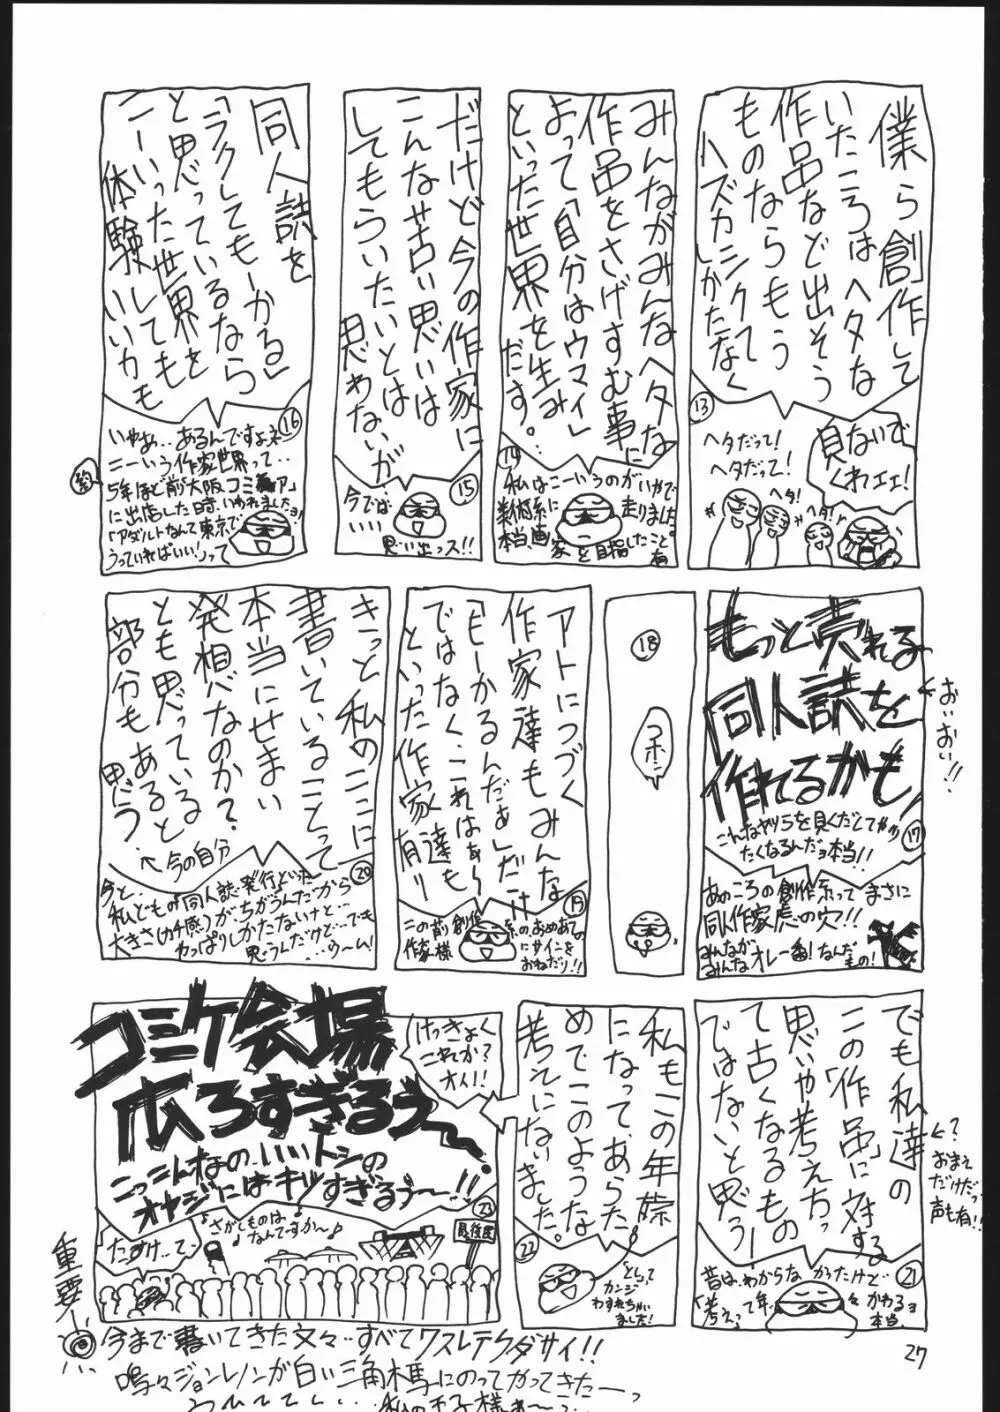 僕ら創作して
いたころはヘタな
作品など出そう
ものならもう
ハズカシクて
しかたなく
13
ヘタだって!
ヘタだって!
ヘタ!
ヘタ!
見ないで
くれェェ!
みんながみんなヘタな
作品をさげすむ事に
よって「自分はウマイ」
といった世界を生み
だす。
14
私はこーいうのがいやで
美術系に走りました
本当、画家を目指したこと。
有
だけど今の作家に
こんな苦い思いは
してもらいたいとは
思わないが
15
今では
いい
思い出っス!!
同人誌を
「ラクしてもーかる」
と思っているなら
こーいった世界を
体験しても
いいかも
16
いやぁ…あるんですよネ
こーいう作家世界って…
5年ほど前「大阪コミケア」
に出店した時、いわれましたョ
「アダルトなんて東京で
うっていればいい!」って
もっと売れる
同人誌を
作れるかも!
おいおい!!
17
こんなヤツらを見くだしてやり
たくなるんだョ本当!!
あのころの創作系ってまさに
同人作家虎の穴!!
みんなが
みんなオレ一番!なんだ
もの!
18
コホン
アトにつづく
作家達もみんな
「もーかるんだぁ」だけ
ではなく、これはぁ〜
といった作家達も
有り
19
この前創作系の、おめあての
作家様にサインを
おねだり!!
きっと私のここに
書いていることって
本当にせまい
発想なのか?
とも思っている
部分もあると
思う。
←今の自分
20
今と…
私どもの「同人誌」発行といった
大きさ(カチ感)がちがうんだから
やっぱりしかたないけど…でも
思うんだけど…ウーム!
でも私達の
この「作品」に対する
思いや考え方っ
て古くなるもの
ではないと思う!
←?
おまえ
だけだっ
声も有!!
21
昔は、わからなかったけど
「考え」って年々かわるョ
本当。
私もこの年際
になって、あらた
めてこのような
考えにないきました。
22
「と」って
カンジ
わすれちゃい
ました!
けっきょく
これか?
オイ!!
コミケ会場
広ろすぎるぅ〜
こっこんなの、いいトシの
オヤジにはキツすぎるぅ〜!!
23
♪さがしものは
なんですか〜♪
たすけ…て…
最後尾
重要!
今まで書いてきた文々…すべてワスレテクダサイ!!
嗚々ジョンレノンが白い三角木馬にのってやってきたーっ
27